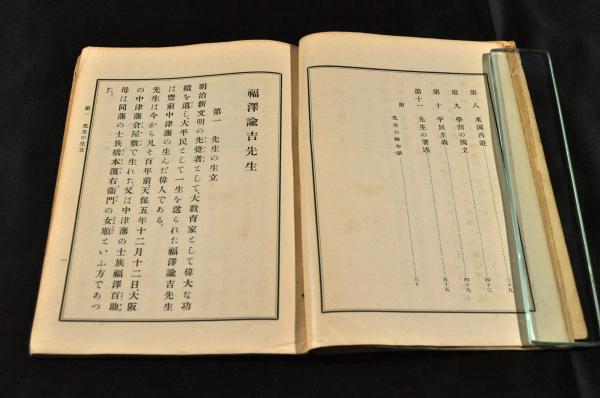 第八 米國再遊……三十九
第九 學問の獨立……四十三
第十 平民主義……四十九
第十一 先生の著述……五十五
附 先生の略年譜……六十
福澤諭吉先生
第一 先生の生立
明治新文明の先覺者として、大敎育家として偉大な功
績を遺し大平民として一生を送られた福澤諭吉先生
は豐前中津藩の生んだ偉人である。
先生は今から凡そ百年前天保五年十二月十二日、大阪
の中津藩倉屋敷で生れた。父は中津藩の士族福澤百助
母は同藩の士族橋本濱右衞門の女順といふ方であつ
た。
第一 先生の生立
一